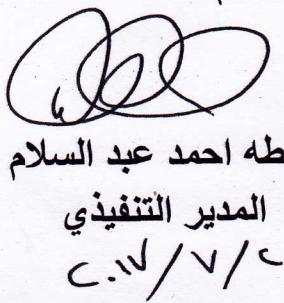 طه احمد عبد السلام
المدير التنفيذي
٢٠١٧/٧/٢